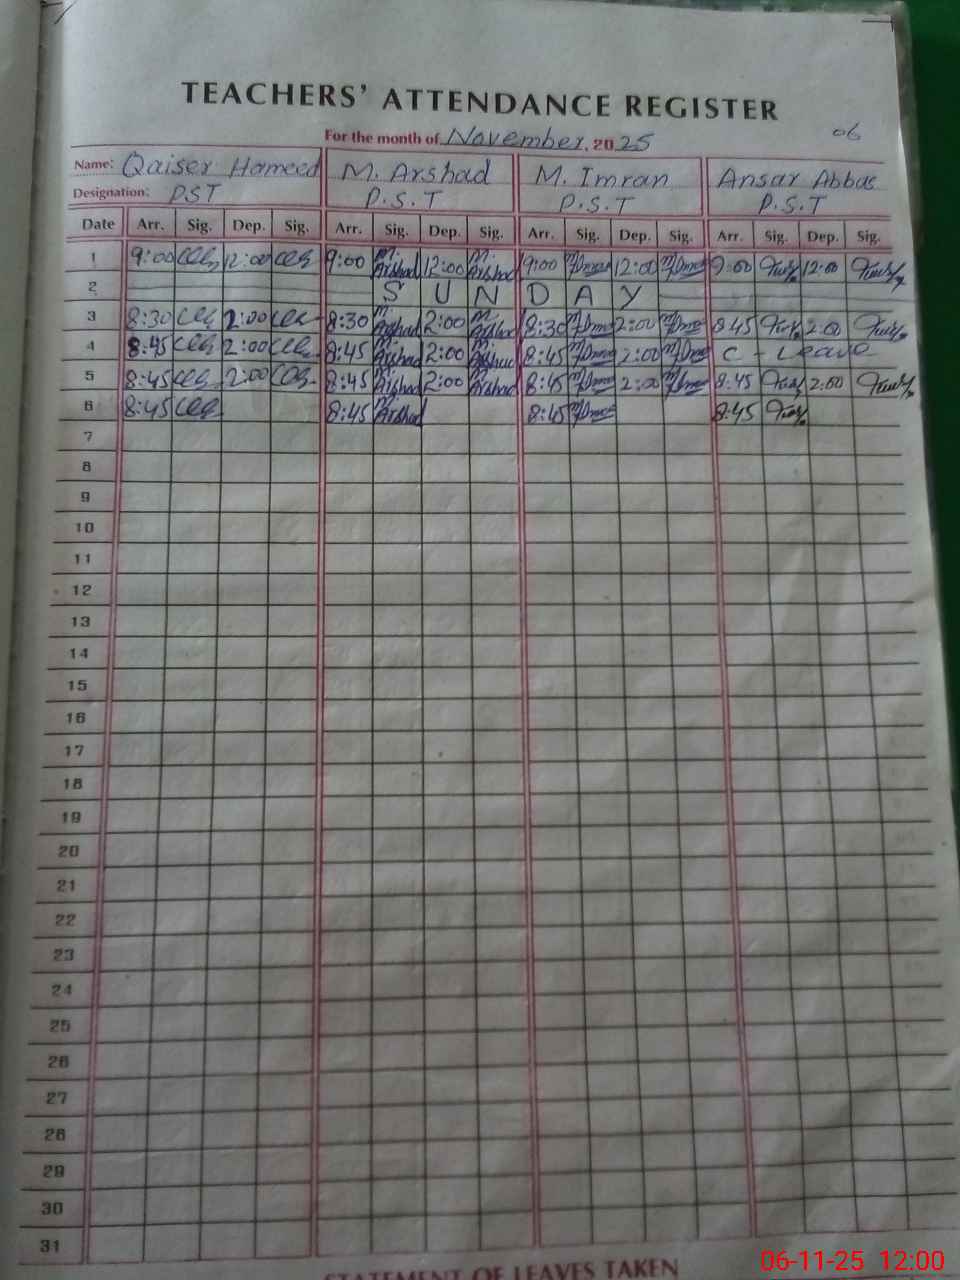 TEACHERS' ATTENDANCE REGISTER
For the month of November, 2025 06
Name: Qaiser Hameed M. Arshad M. Imran Ansar Abbas
Designation: PST P.S.T P.S.T P.S.T
Date Arr. Sig. Dep. Sig. Arr. Sig. Dep. Sig. Arr. Sig. Dep. Sig. Arr. Sig. Dep. Sig.
1 9:00 12:00 9:00 M. Arshad 12:00 M. Arshad 9:00 12:00 9:00 12:00
2 SUNDAY
3 8:30 2:00 8:30 M. Arshad 2:00 M. Arshad 8:30 2:00 8:45 2:00
4 8:45 2:00 8:45 M. Arshad 2:00 M. Arshad 8:45 2:00 C - Leave
5 8:45 2:00 8:45 M. Arshad 2:00 M. Arshad 8:45 2:00 8:45 2:00
6 8:45 8:45 M. Arshad 8:45 8:45
7
8
9
10
11
12
13
14
15
16
17
18
19
20
21
22
23
24
25
26
27
28
29
30
31
STATEMENT OF LEAVES TAKEN
06-11-25 12:00